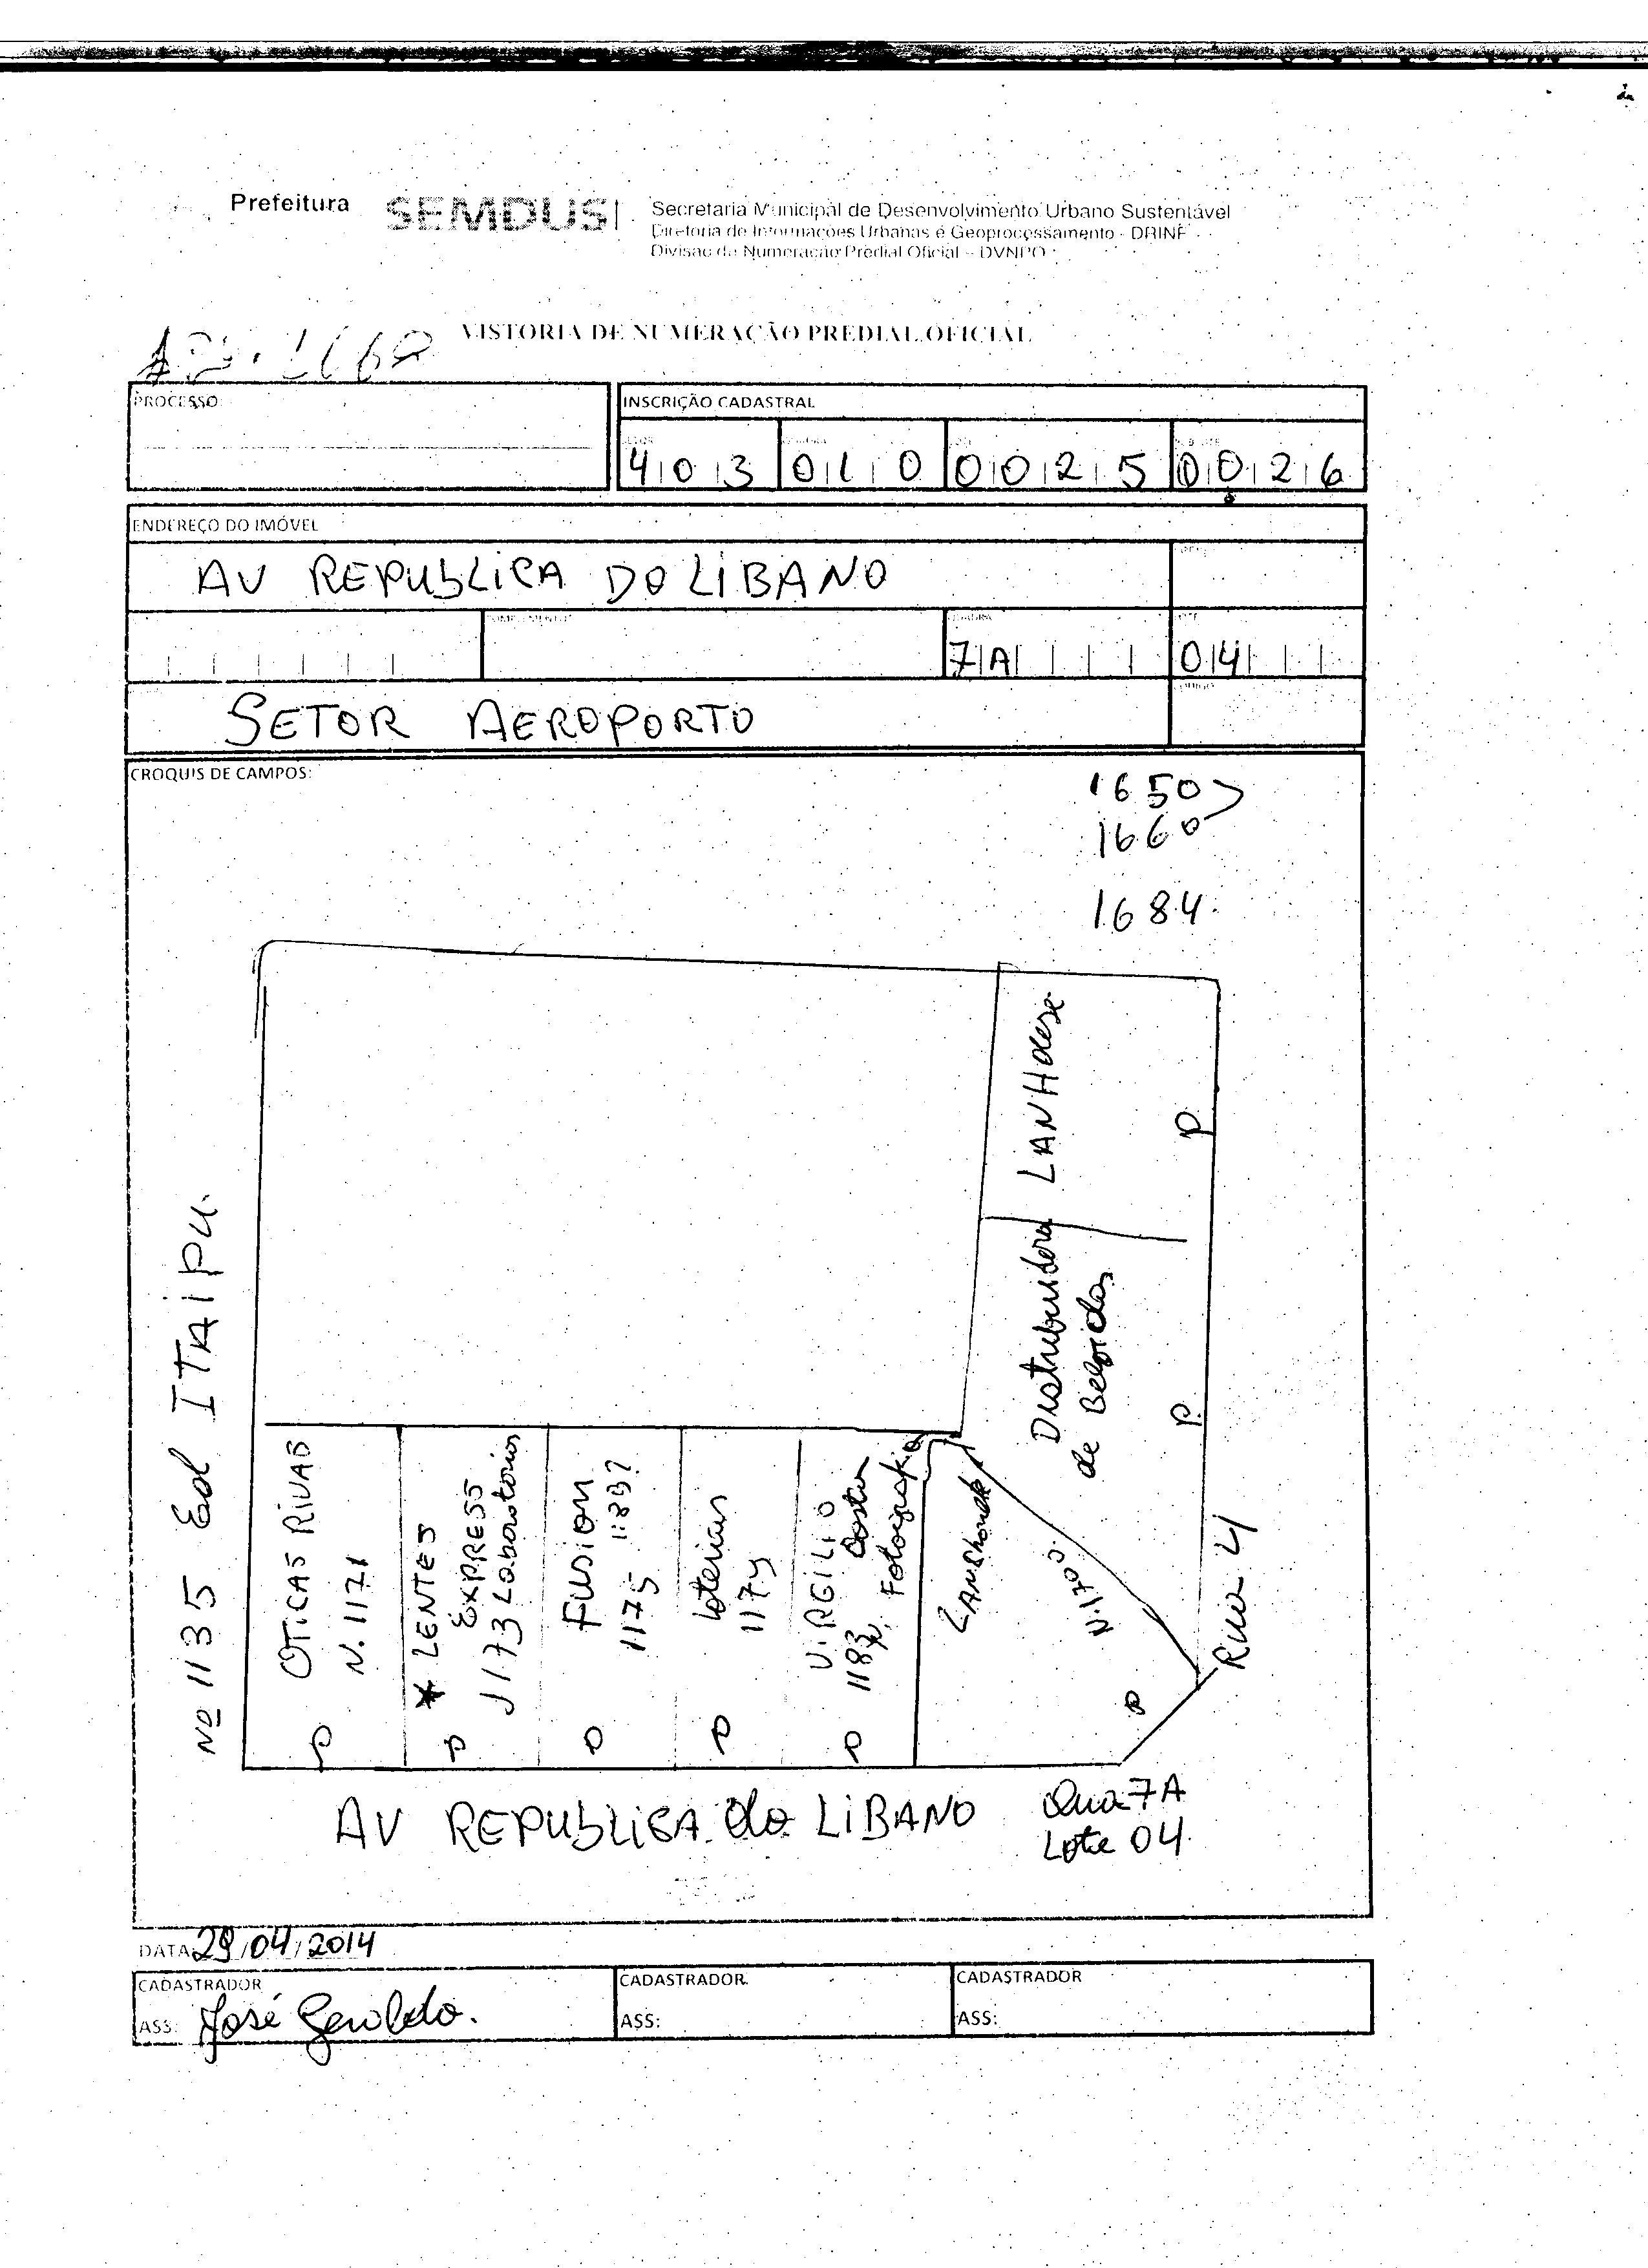 Prefeitura SEMDUS
Secretaria Municipal de Desenvolvimento Urbano Sustentável
Diretoria de Informações Urbanas e Geoprocessamento - DRINF
Divisão da Numeração Predial Oficial - DVNPO
VISTORIA DE NUMERAÇÃO PREDIAL OFICIAL
PROCESSO:
INSCRIÇÃO CADASTRAL
403 010 0025 0026
ENDEREÇO DO IMÓVEL
AV REPUBLICA DO LIBANO
QUADRA
7A 04
SETOR AEROPORTO
CROQUIS DE CAMPOS:
1650
1660
1684.
LAN House
P
Distribuidora
de Bebidas
P
Nº 1135 Ed ITAIPU.
OTICAS RIVAB
N. 1171
P
* LENTES
EXPRESS
1173 Laboratorios
P
Fusion
1175 1183?
P
Loterias
1179
P
VIRGILIO
1183
Fotografia
P
LANShonete
N.1700
P
Rua 4
AV REPUBLICA do LIBANO
Qua 7A
Lote 04.
DATA 29/04/2014
CADASTRADOR
ASS: José Geraldo.
CADASTRADOR
ASS:
CADASTRADOR
ASS: